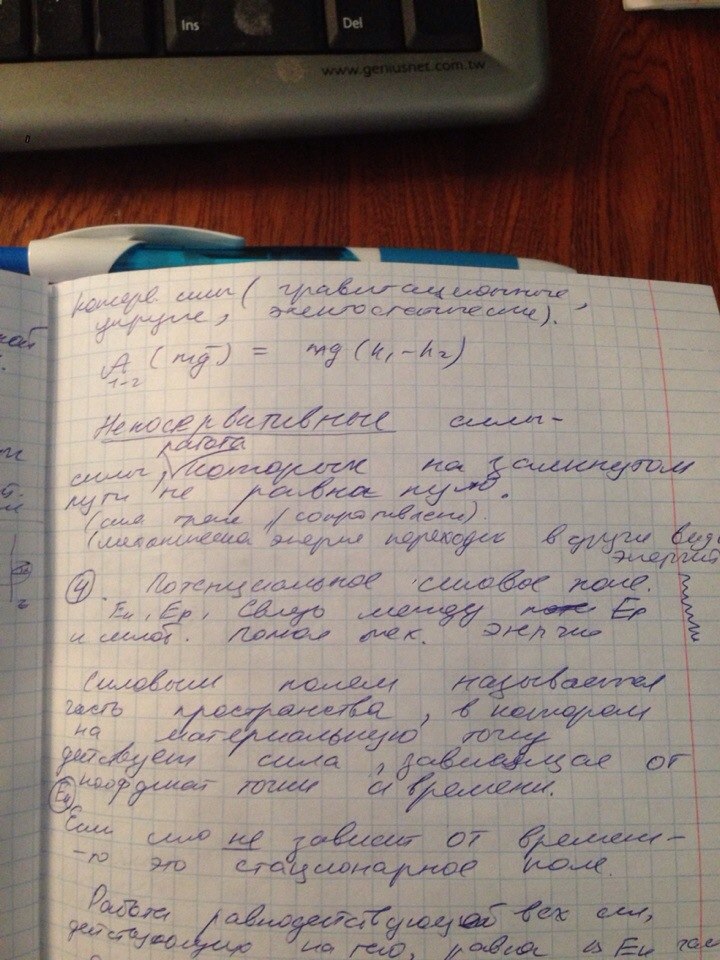 Ins
Del
www.geniusnet.com.tw
консерв. силы (гравитационные,
упругие, электростатические).
A (mg) = mg (h₁ - h₂)
1-2
Непосервитивные силы-
работа
силы, которых на замкнутом
пути не равна нулю.
(сила трения, сопротивления).
(механическая энергия переходит в другие виды
энергии
4 Потенциальное силовое поле.
Ек, Ер, Связь между Ер
и силой. Полная мех. энергия
Силовым полем называется
часть пространства, в котором
на материальную точку
действует сила, зависящая от
координат точки и времени.
Ек
Если сила не зависит от времени-
-то это стационарное поле.
Работа равнодействующей всех сил,
действующих на тело, равна Ек